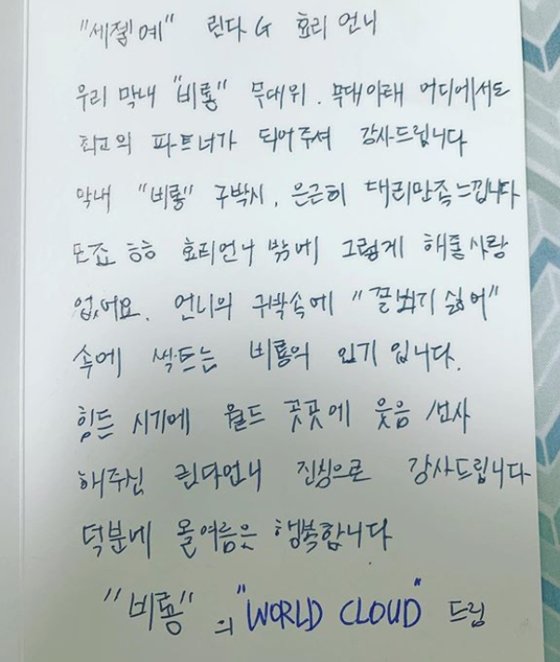 "세젤예" 린다G 효리 언니
우리 막내 "비룡" 무대위. 무대아래 어디에서도
최고의 파트너가 되어주셔 감사드립니다
막내 "비룡" 구박시, 은근히 대리만족느낍니다
모죠 ㅎㅎ 효리언니 밖에 그렇게 해줄사람
없어요. 언니의 구박속에 "꼴뵈기 싫어"
속에 싹트는 비룡의 인기 입니다.
힘든 시기에 월드 곳곳에 웃음 선사
해주신 린다언니 진심으로 감사드립니다
덕분에 올여름은 행복합니다
"비룡"의 "WORLD CLOUD" 드림